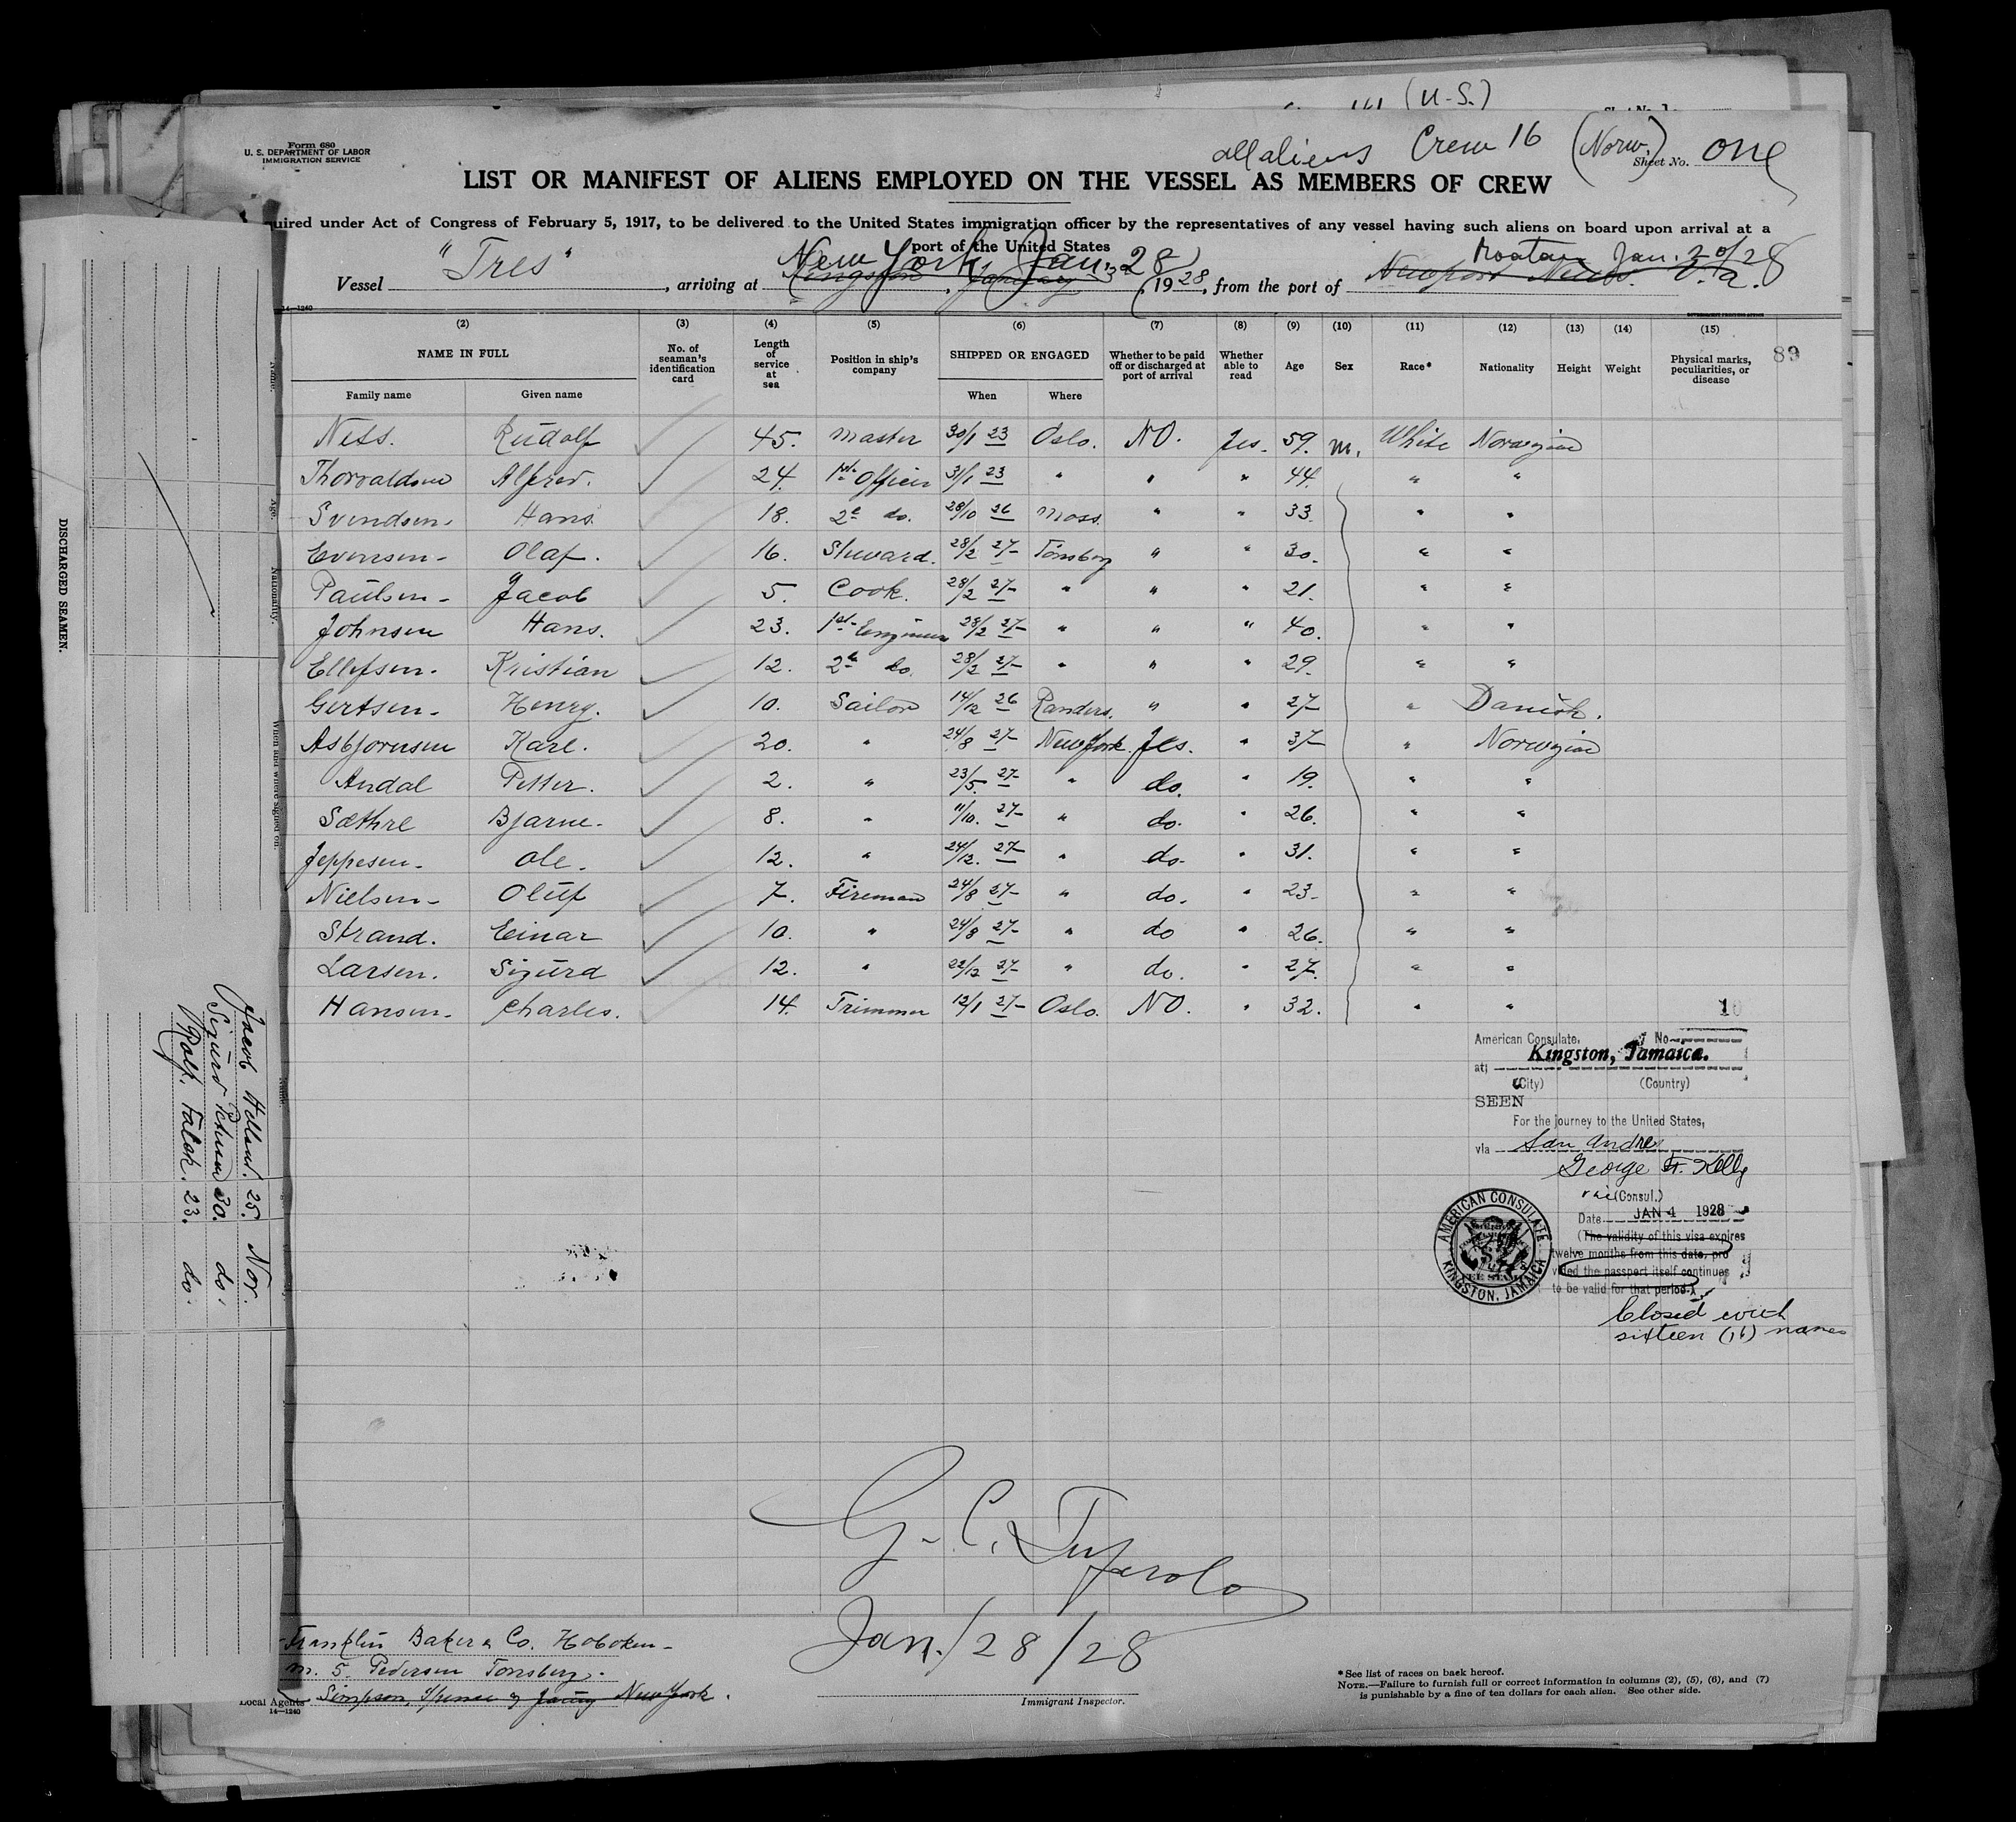 (U.S.)
all aliens Crew 16 (Norw.)
Form 680
U. S. DEPARTMENT OF LABOR
IMMIGRATION SERVICE
Sheet No. one
LIST OR MANIFEST OF ALIENS EMPLOYED ON THE VESSEL AS MEMBERS OF CREW
uired under Act of Congress of February 5, 1917, to be delivered to the United States immigration officer by the representatives of any vessel having such aliens on board upon arrival at a
port of the United States
New York, Jan. 28 Roatan Jan. 20/28
Vessel "Tres", arriving at Kingston, January 3, 1928, from the port of Newport News. Va.
14—1240
(2) (3) (4) (5) (6) (7) (8) (9) (10) (11) (12) (13) (14) (15)
NAME IN FULL No. of seaman's identification card Length of service at sea Position in ship's company SHIPPED OR ENGAGED Whether to be paid off or discharged at port of arrival Whether able to read Age Sex Race* Nationality Height Weight Physical marks, peculiarities, or disease 89
Family name Given name When Where
Ness. Rudolf 45. Master 30/1 23 Oslo. NO. Yes. 59. m. White Norwegian
Thorvaldsen Alfred. 24. 1st Officer 31/1 23 " " " 44. " "
Svendsen. Hans. 18. 2d do. 28/10 26 Moss. " " 33. " "
Evensen- Olaf. 16. Steward. 28/2 27- Tönsberg " " 30. " "
Paulsen- Jacob 5. Cook. 28/2 27- " " " 21. " "
Johnsen Hans. 23. 1st Engineer 28/2 27- " " " 40. " "
Ellefsen. Kristian 12. 2d do. 28/2 27- " " " 29. " "
Gertsen- Henry. 10. Sailor 14/12 26 Randers. " " 27- " Danish.
Asbjornsen Karl. 20. " 24/8 27- New York. Yes. " 37- " Norwegian
Andal Petter. 2. " 23/5. 27- " do. " 19. " "
Sæthre Bjarne. 8. " 11/10. 27- " do. " 26. " "
Jeppesen- Ole. 12. " 24/12. 27- " do. " 31. " "
Nielsen- Oluf 7. Fireman 24/8 27- " do. " 23. " "
Strand. Einar 10. " 24/8 27- " do " 26. " "
Larsen. Sigurd 12. " 22/12 27- " do. " 27. " "
Hansen- Charles. 14. Trimmer 12/1 27- Oslo. NO. " 32. " "
10
American Consulate, No
at Kingston, Jamaica.
(City) (Country)
SEEN
For the journey to the United States,
via San Andres
George F. Kelly
(Consul.)
Date JAN 4 1928
(The validity of this visa expires
twelve months from this date, pro
vided the passport itself continues
to be valid for that period.)
AMERICAN CONSULATE
KINGSTON, JAMAICA
Closed with
sixteen (16) names
DISCHARGED SEAMEN.
Name.
Age.
Nationality.
When and where signed on.
Jacob Helland. 25. Nor.
Sigurd 30. do.
Rolf. Falck. 23. do.
Jan./28/28
Immigrant Inspector.
Franklin Baker & Co. Hoboken-
M. S. Pedersen Tonsberg.
Local Agents Simpson, Spence & Young New York.
14—1240
*See list of races on back hereof.
NOTE.—Failure to furnish full or correct information in columns (2), (5), (6), and (7)
is punishable by a fine of ten dollars for each alien. See other side.